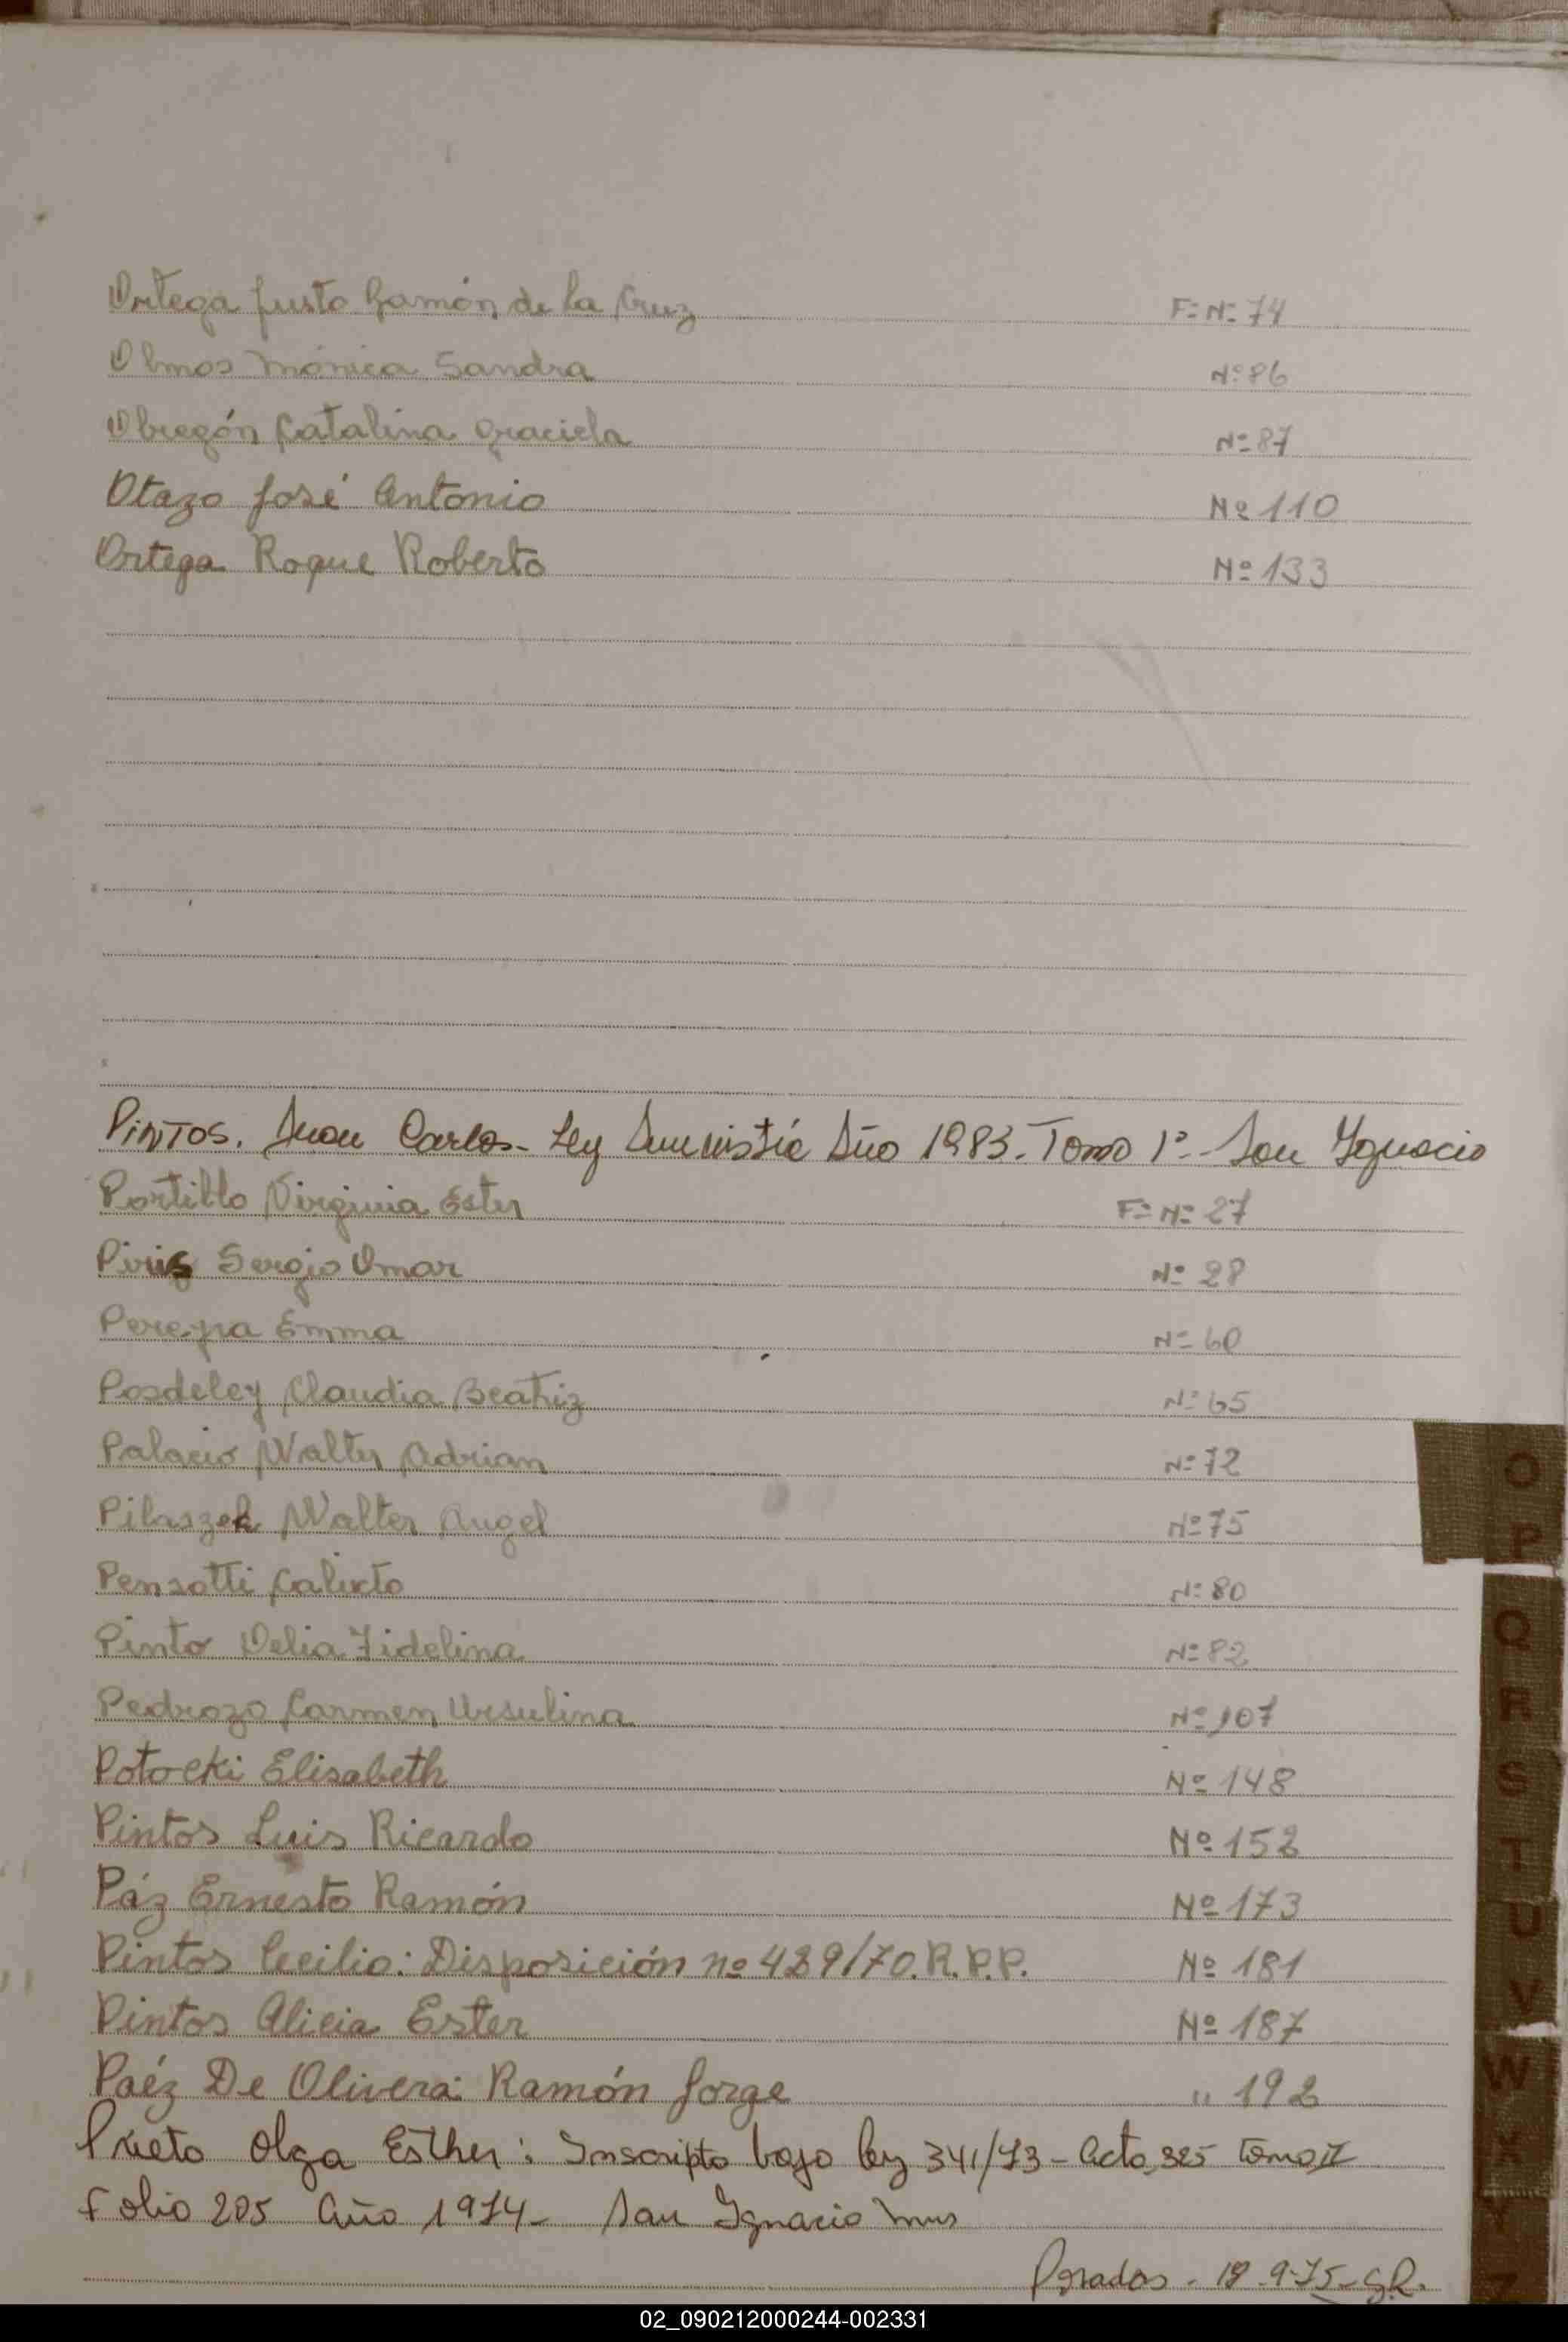 Ortega Justo Ramón de la Cruz F= N= 74
Olmos Mónica Sandra Nº 86
Obregón Catalina Graciela Nº 87
Otazo José Antonio Nº 110
Ortega Roque Roberto Nº 133
PINTOS. Juan Carlos- Ley Amnistía Año 1983. Tomo 1º- San Ygnacio
Portillo Virginia Ester F= N= 27
Piris Sergio Omar Nº 28
Pereyra Emma Nº 60
Posdeley Claudia Beatriz Nº 65
Palacio Walter Adrian Nº 72
Pilaszek Walter Angel Nº 75
Pensotti Calixto Nº 80
Pinto Delia Fidelina Nº 82
Pedrozo Carmen Ursulina Nº 107
Potocki Elisabeth Nº 148
Pintos Luis Ricardo Nº 152
Páz Ernesto Ramón Nº 173
Pintos Cecilio: Disposición nº 429/70. R.P.P. Nº 181
Pintos Alicia Ester Nº 187
Paéz De Olivera: Ramón Jorge " 192
Prieto Olga Esther: Inscripto bajo ley 341/73- Acta 325 tomo II
Folio 205 Año 1974- San Ignacio Mnes
Posadas - 18-9-75-
O
P
Q
R
S
T
U
V
W
X
Y
Z
02_090212000244-002331